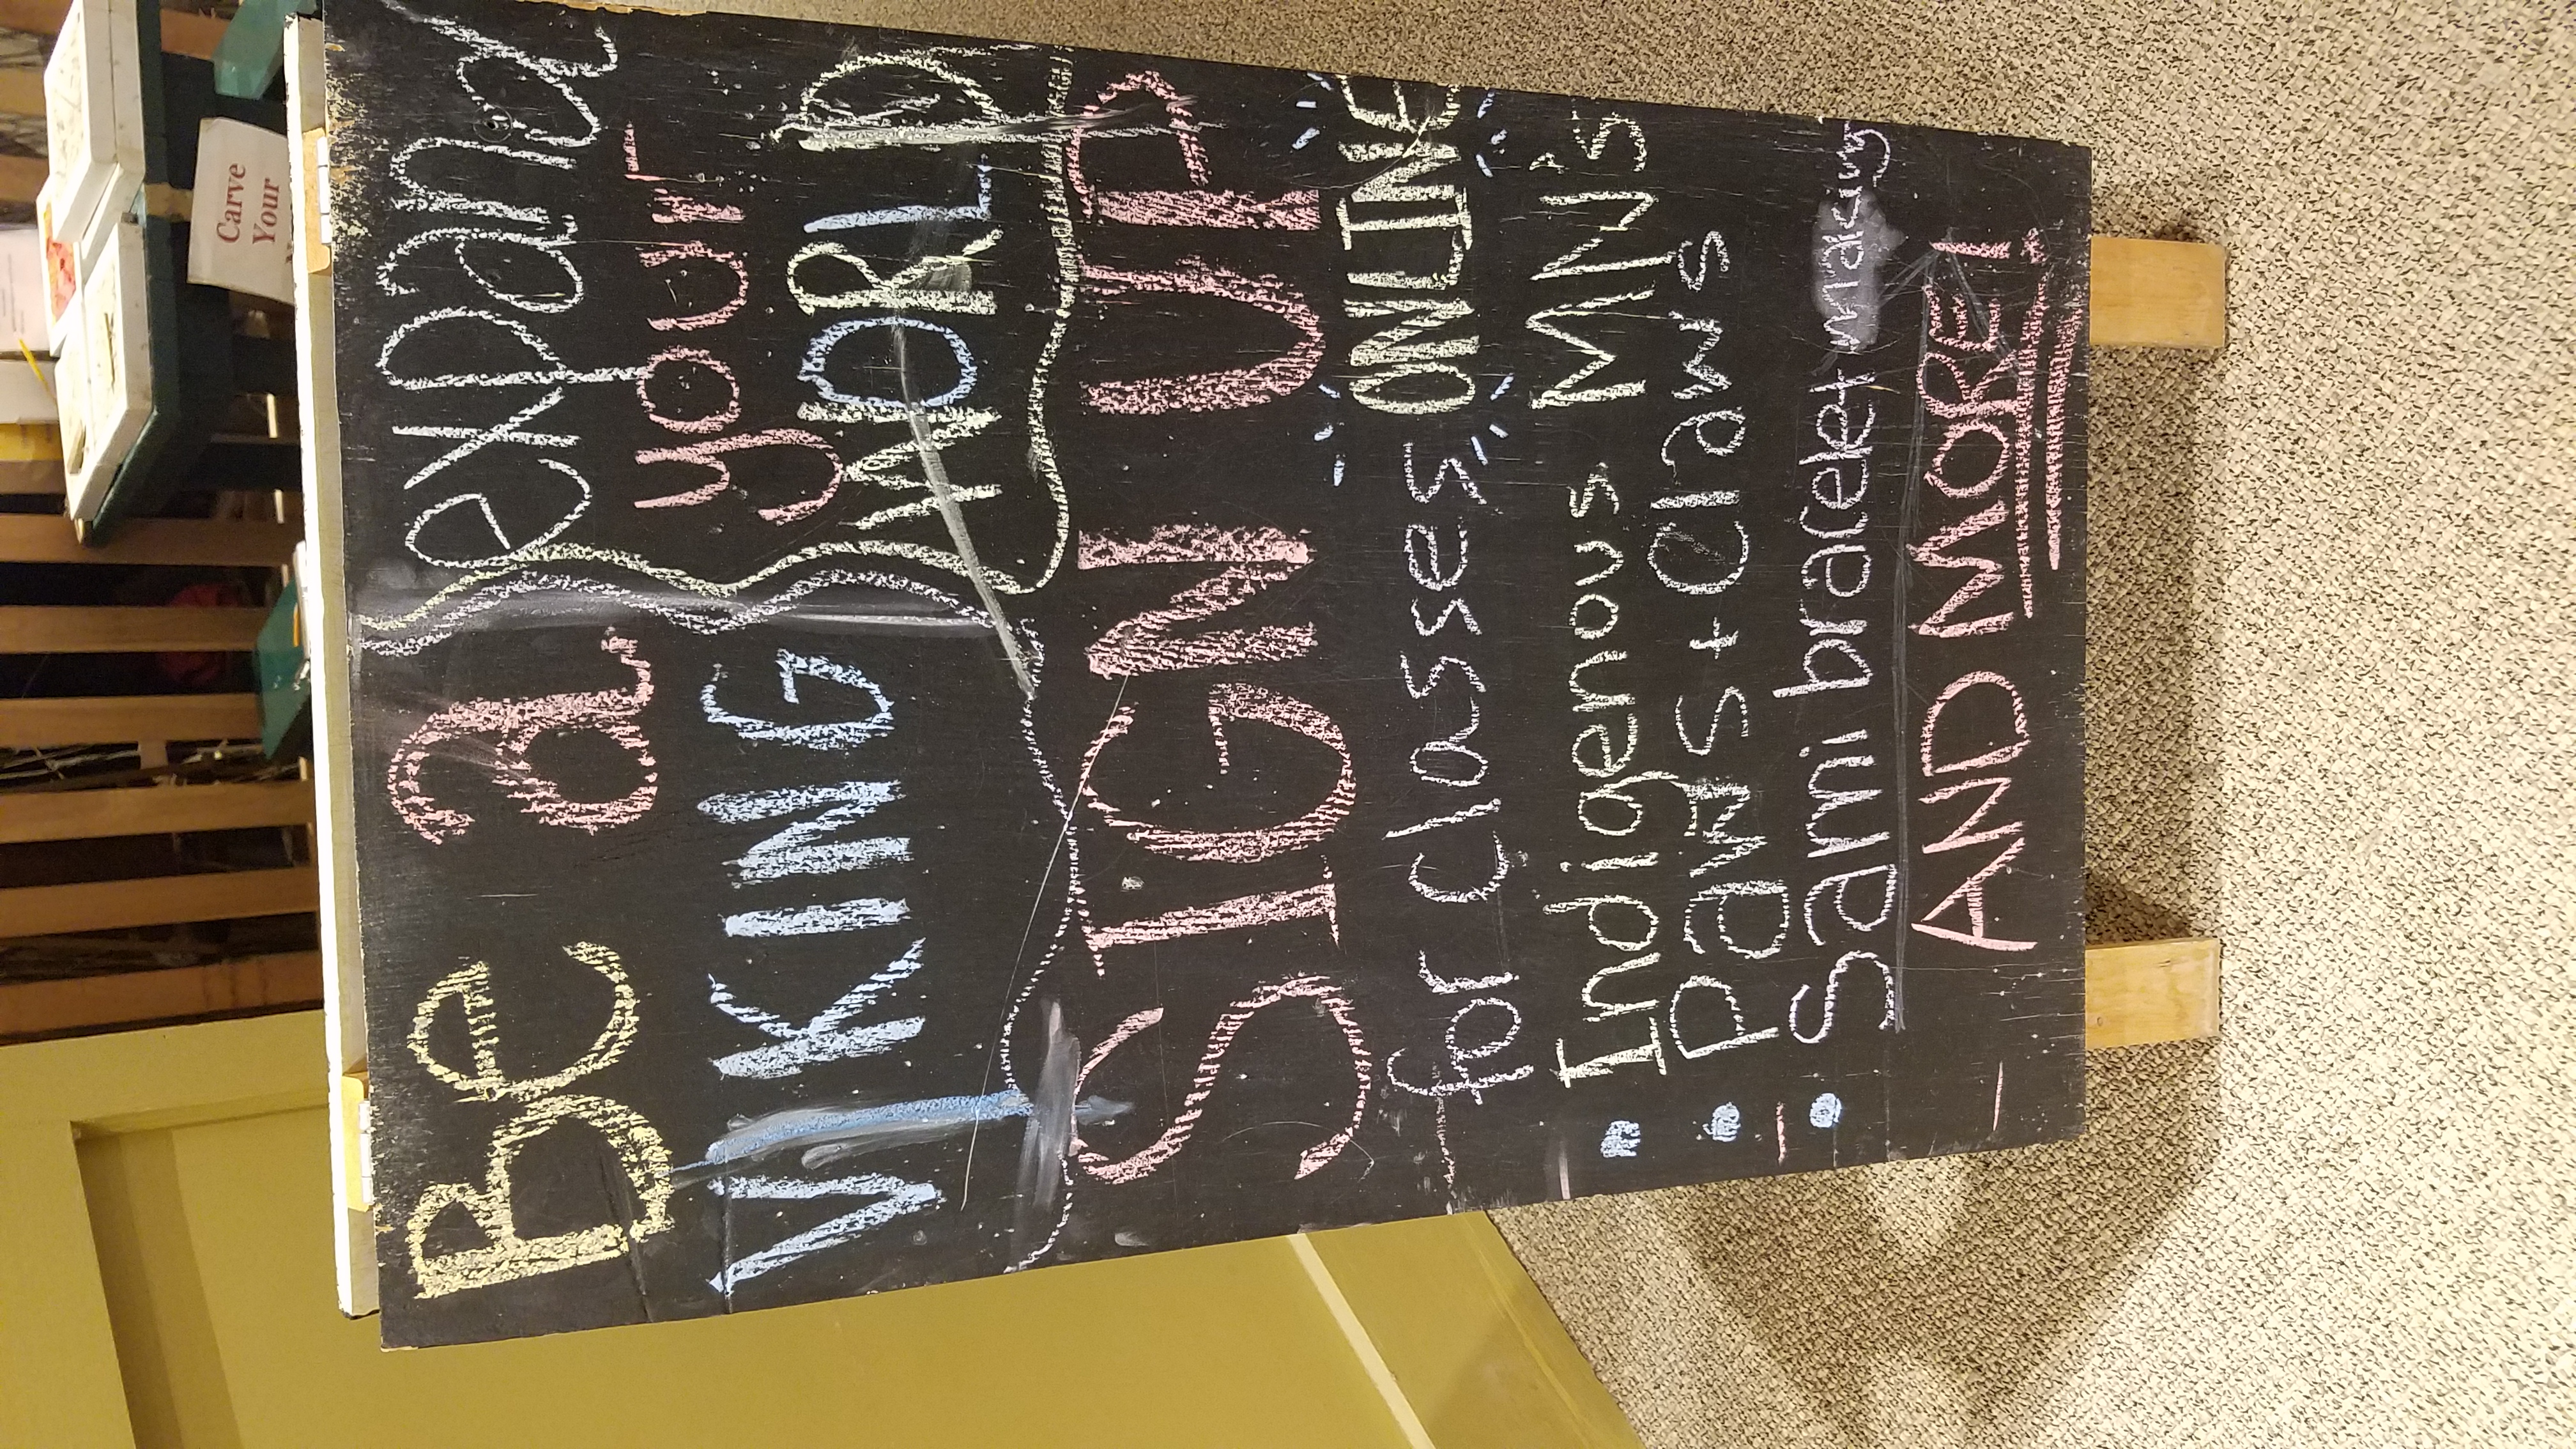 Be a
VIKING
expand
your
WORLD
SIGN UP
for classes ONLINE
• Indigenous MN's
• Paws + Claws
• Sami bracelet making
AND MORE!
Carve
Your